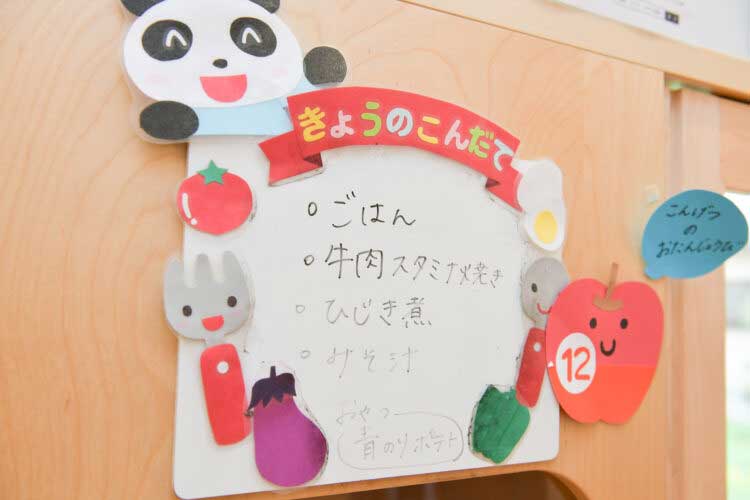 きょうのこんだて
○ ごはん
○ 牛肉スタミナ焼き
○ ひじき煮
○ みそ汁
おやつ
青のりポテト
12
こんげつ
の
おたんじょうび